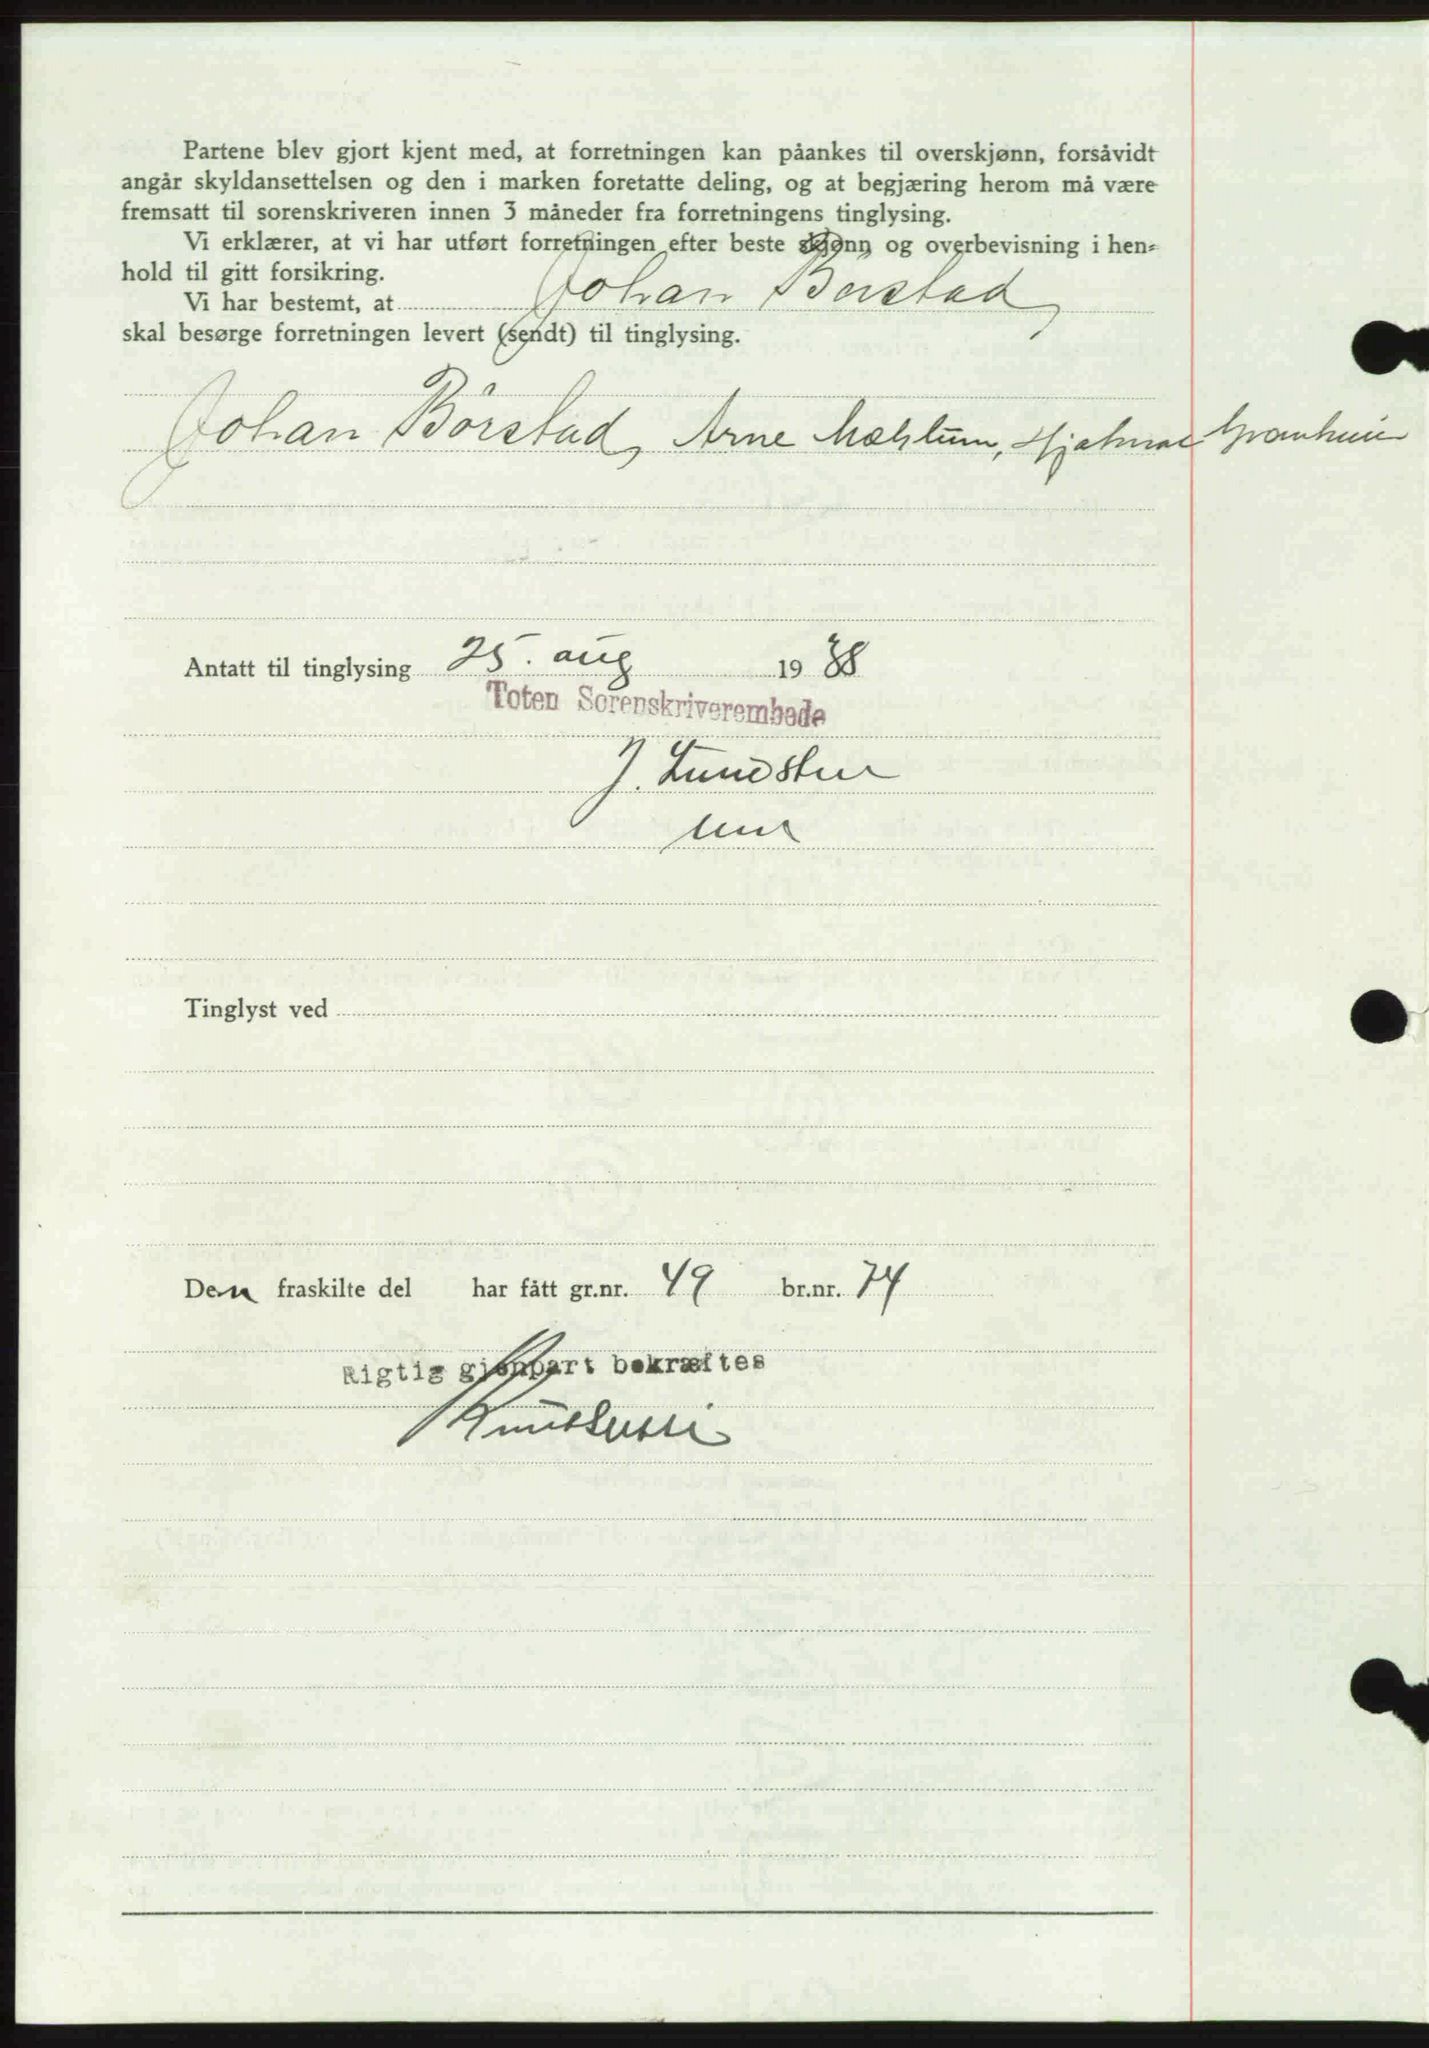 Partene blev gjort kjent med, at forretningen kan påankes til overskjønn, forsåvidt
angår skyldansettelsen og den i marken foretatte deling, og at begjæring herom må være
fremsatt til sorenskriveren innen 3 måneder fra forretningens tinglysing.
Vi erklærer, at vi har utført forretningen efter beste skjønn og overbevisning i hen-
hold til gitt forsikring.
Vi har bestemt, at Johan Börstad
skal besørge forretningen levert (sendt) til tinglysing.
Johan Börstad, Arne Mæhlum, Hjalmar
Antatt til tinglysing 25. aug 1938
Toten Sorenskriverembede
J. Lundsten
Tinglyst ved
Den fraskilte del har fått gr.nr. 49 br.nr. 74
Rigtig gjenpart bekræftes